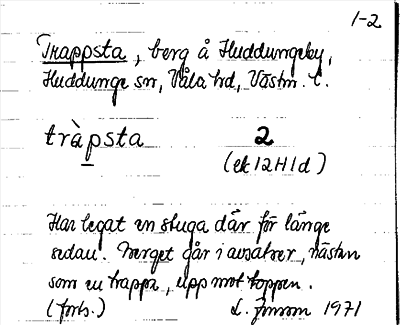 1-2
Trappsta, berg å Huddungeby,
Huddunge sn, Våla hd, Västm. l.
tràpsta 2
(ek 12H1d)
Har legat en stuga där för länge
sedan. Berget går i avsatser, nästan
som en trappa, upp mot toppen.
(forts.) 1971